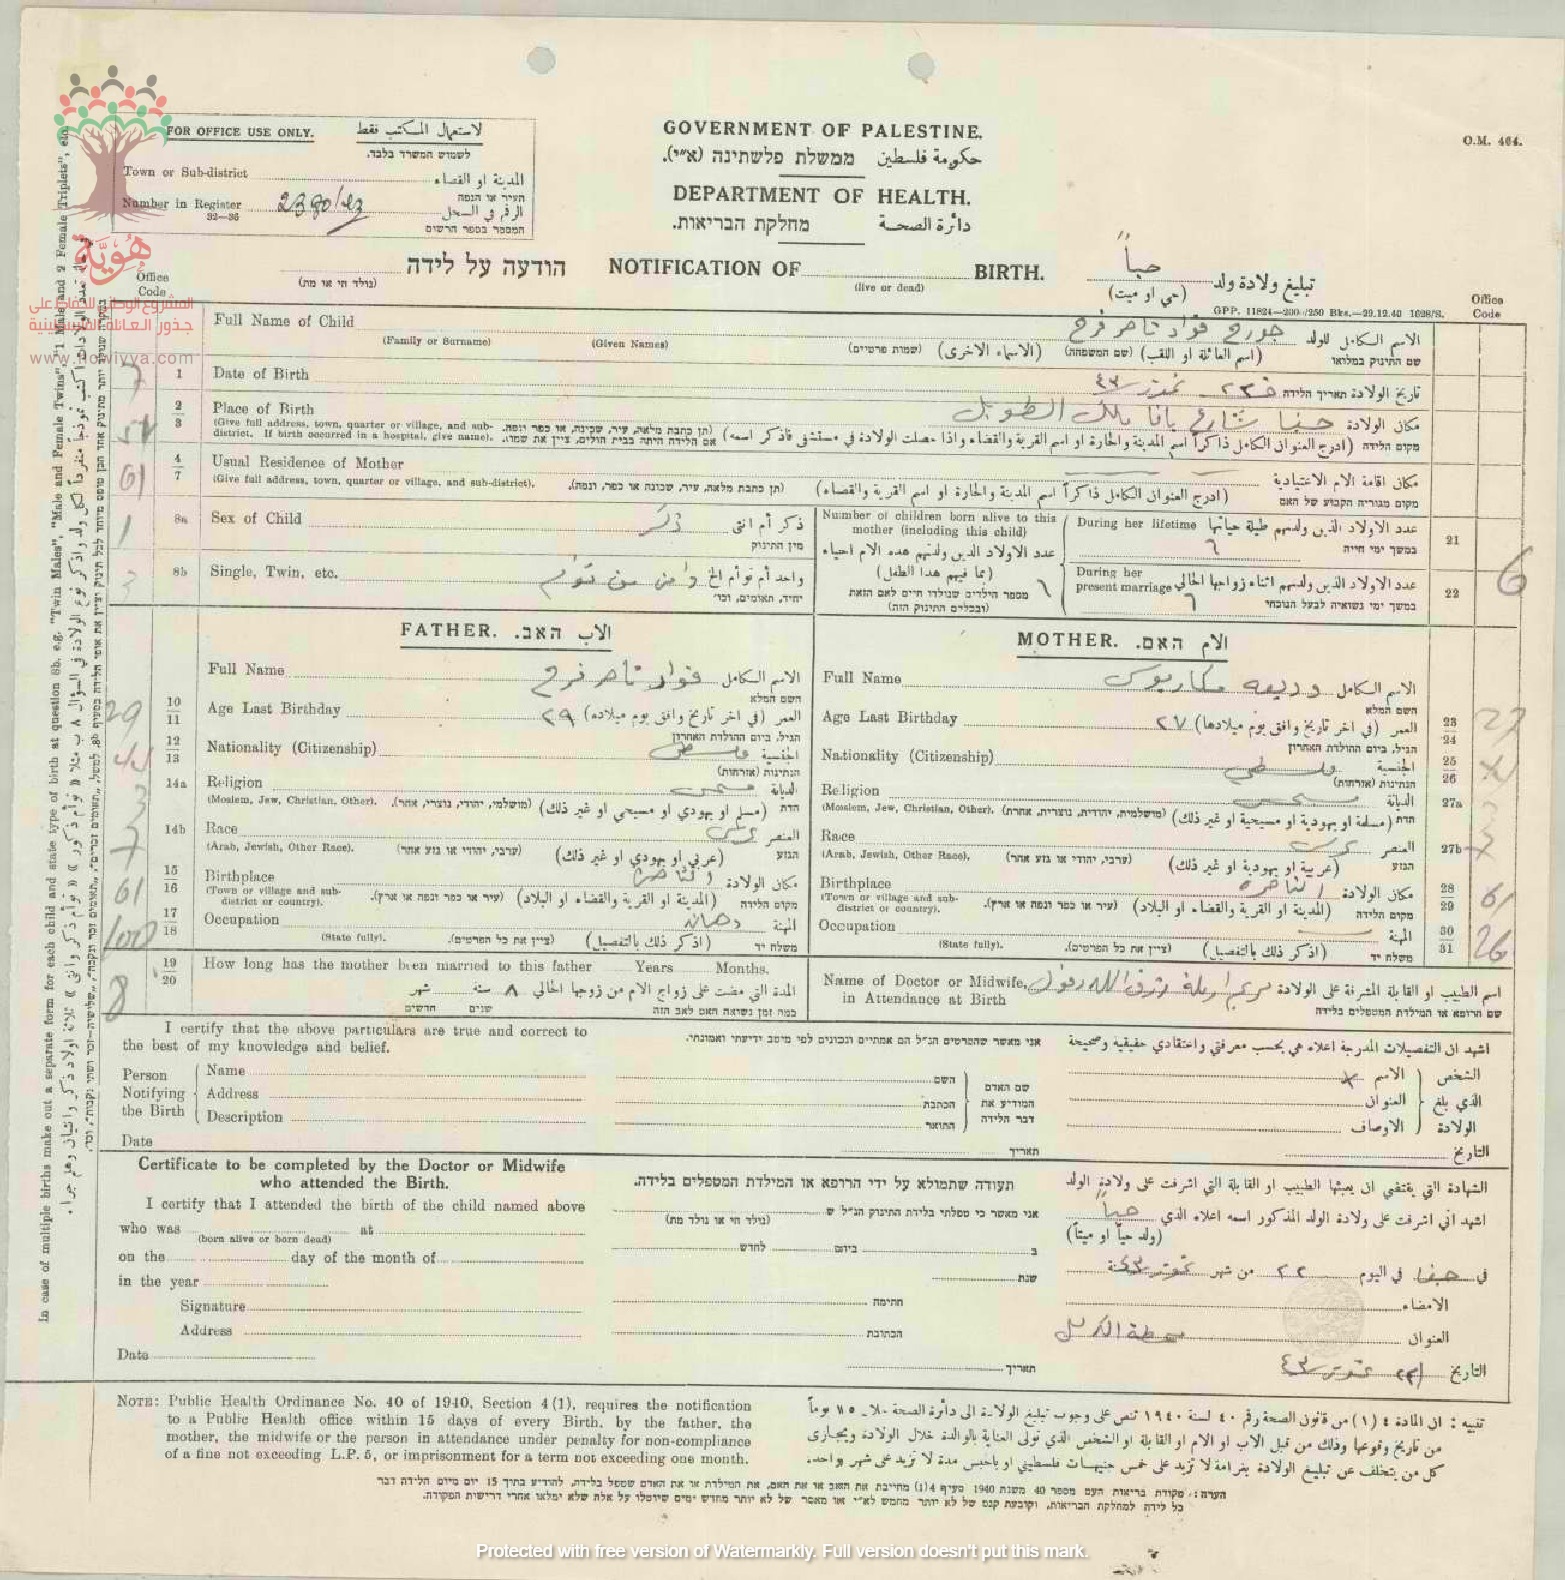 O.M. 464.
FOR OFFICE USE ONLY. لاستعمال المكتب فقط
לשמוש המשרד בלבד.
Town or Sub-district المدينة او القضاء
העיר או הנפה
Number in Register 2380/43 الرقم في السجل
32—36
המספר בספר הרשום
GOVERNMENT OF PALESTINE.
حكومة فلسطين ממשלת פלשתינה (א״י).
DEPARTMENT OF HEALTH.
دائرة الصحة מחלקת הבריאות.
הודעה על לידה NOTIFICATION OF BIRTH. تبليغ ولادة ولد حياً
(נולד חי או מת) (live or dead) (حي او ميت)
GPP. 11824—200/250 Bks.—29.12.40 1628/S.
Office Code
Office Code
Full Name of Child الاسم الكامل للولد جورج فؤاد ناصر فرح
(Family or Surname) (Given Names) (שמות פרטיים) (الاسماء الاخرى) (שם המשפחה) (اسم العائلة او اللقب) שם התינוק במלואו
7 1 Date of Birth تاريخ الولادة תאריך הלידה
2/3 Place of Birth مكان الولادة حيفا شارع يافا ملك الطويل
(Give full address, town, quarter or village, and sub-district. If birth occurred in a hospital, give name). (תן כתבת מלאה, עיר, שכונה, או כפר ונפה. אם הלידה היתה בבית חולים, ציין את שמו). (ادرج العنوان الكامل ذاكراً اسم المدينة والحارة او اسم القرية والقضاء واذا حصلت الولادة في مستشفى فاذكر اسمه) מקום הלידה
61 4/7 Usual Residence of Mother مكان اقامة الام الاعتيادية
(Give full address, town, quarter or village, and sub-district). (תן כתבת מלאה, עיר, שכונה או כפר, ונפה). (ادرج العنوان الكامل ذاكراً اسم المدينة والحارة او اسم القرية والقضاء) מקום מגוריה הקבוע של האם
1 8a Sex of Child ذكر ذكر أم انثى
מין התינוק
3 8b Single, Twin, etc. واحد أم توأم الخ
יחיד, תאומים, וכד׳
Number of children born alive to this mother (including this child)
عدد الاولاد الذين ولدتهم هذه الام احياء (بما فيهم هذا الطفل) ٦
מספר הילדים שנולדו חיים לאם הזאת (ובכללם התינוק הזה)
During her lifetime عدد الاولاد الذين ولدتهم طيلة حياتها ٦ 21
במשך ימי חייה
During her present marriage عدد الاولاد الذين ولدتهم اثناء زواجها الحالي ٦ 22 6
במשך ימי נשואיה לבעל הנוכחי
FATHER. האב. الاب
MOTHER. האם. الام
Full Name فؤاد ناصر فرح الاسم الكامل
השם המלא
29 10/11 Age Last Birthday ٢٩ العمر (في اخر تاريخ وافق يوم ميلاده)
הגיל, ביום ההולדת האחרון
12/13 Nationality (Citizenship) فلسطيني الجنسية
הנתינות (אזרחות)
3 14a Religion مسيحي الديانة
(Moslem, Jew, Christian, Other). (מושלמי, יהודי, נוצרי, אחר). (مسلم او يهودي او مسيحي او غير ذلك) הדת
7 14b Race عربي العنصر
(Arab, Jewish, Other Race). (ערבי, יהודי או גזע אחר) (عربي او يهودي او غير ذلك) הגזע
61 15/16 Birthplace الناصرة مكان الولادة
(Town or village and sub-district or country). (עיר או כפר ונפה או ארץ). (المدينة او القرية والقضاء او البلاد) מקום הלידה
100 17/18 Occupation دهان المهنة
(State fully). (ציין את כל הפרטים). (اذكر ذلك بالتفصيل) משלח יד
8 19/20 How long has the mother been married to this father Years Months.
المدة التي مضت على زواج الام من زوجها الحالي ٨ سنة شهر
כמה זמן נשואה האם לאב הזה שנים חדשים
Full Name وديعه الاسم الكامل
השם המלא
Age Last Birthday ٢٧ العمر (في اخر تاريخ وافق يوم ميلادها) 23/24 27
הגיל, ביום ההולדת האחרון
Nationality (Citizenship) فلسطيني الجنسية 25/26
הנתינות (אזרחות)
Religion مسيحي الديانة 27a 3
(Moslem, Jew, Christian, Other). (מושלמית, יהודית, נוצרית, אחרת) (مسلمة او يهودية او مسيحية او غير ذلك) הדת
Race عربي العنصر 27b 7
(Arab, Jewish, Other Race). (ערבי, יהודי או גזע אחר) (عربية او يهودية او غير ذلك) הגזע
Birthplace الناصره مكان الولادة 28/29 61
(Town or village and sub-district or country). (עיר או כפר ונפה או ארץ). (المدينة او القرية والقضاء او البلاد) מקום הלידה
Occupation المهنة 30/31 26
(State fully). (ציין את כל הפרטים). (اذكر ذلك بالتفصيل) משלח יד
Name of Doctor or Midwife, in Attendance at Birth اسم الطبيب او القابلة المشرفة على الولادة
שם הרופא או המילדת המטפלים בלידה
I certify that the above particulars are true and correct to the best of my knowledge and belief.
אני מאשר שהפרטים הנ״ל הם אמתיים ונכונים לפי מיטב ידיעתי ואמונתי.
اشهد ان التفصيلات المدرجة اعلاه هي بحسب معرفتي واعتقادي حقيقية وصحيحة
Person Notifying the Birth
Name השם الاسم
Address הכתבת العنوان
Description התואר الاوصاف
שם האדם המודיע את דבר הלידה
الشخص الذي بلغ الولادة
Date תאריך التاريخ
Certificate to be completed by the Doctor or Midwife who attended the Birth.
תעודה שתמולא על ידי הרופא או המילדת המטפלים בלידה.
الشهادة التي يقتضي ان يعبئها الطبيب او القابلة التي اشرفت على ولادة الولد
I certify that I attended the birth of the child named above
who was at
(born alive or born dead)
on the day of the month of
in the year
Signature
Address
Date
אני מאשר כי טפלתי בלידת התינוק הנ״ל ש
(נולד חי או נולד מת)
ב ביום לחדש
שנת
חתימה
הכתובת
תאריך
اشهد اني اشرفت على ولادة الولد المذكور اسمه اعلاه الذي حياً
(ولد حياً او ميتاً)
في حيفا في اليوم ٢٢ من شهر سنة
الامضاء
العنوان محطة الكرمل
التاريخ
NOTE: Public Health Ordinance No. 40 of 1940, Section 4 (1), requires the notification
to a Public Health office within 15 days of every Birth, by the father, the
mother, the midwife or the person in attendance under penalty for non-compliance
of a fine not exceeding L.P. 5, or imprisonment for a term not exceeding one month.
تنبيه : ان المادة ٤ (١) من قانون الصحة رقم ٤٠ لسنة ١٩٤٠ تنص على وجوب تبليغ الولادة الى دائرة الصحة خلال ١٥ يوماً
من تاريخ وقوعها وذلك من قبل الاب او الام او القابلة او الشخص الذي تولى العناية بالوالدة خلال الولادة ويجازى
كل من يتخلف عن تبليغ الولادة بغرامة لا تزيد على خمس جنيهات فلسطيني او بالحبس مدة لا تزيد على شهر واحد.
הערה: פקודת בריאות העם מספר 40 משנת 1940 סעיף 4(1) מחייבת את האב או את האם, את המילדת או את האדם שטפל בלידה, להודיע בתוך 15 יום מיום הלידה דבר
כל לידה למחלקת הבריאות, וקובעת קנס של לא יותר מחמש לא״י או מאסר של לא יותר מחדש ימים שיוטלו על אלה שלא ימלאו אחרי דרישות הפקודה.
In case of multiple births make out a separate form for each child and state type of birth at question 8b. e.g. "Twin Males", "Male and Female Twins", "1 Male and 2 Female Triplets", etc.
هُويّة
المشروع الوطني للحفاظ على
جذور العائلة الفلسطينية
www.howiyya.com
Protected with free version of Watermarkly. Full version doesn't put this mark.